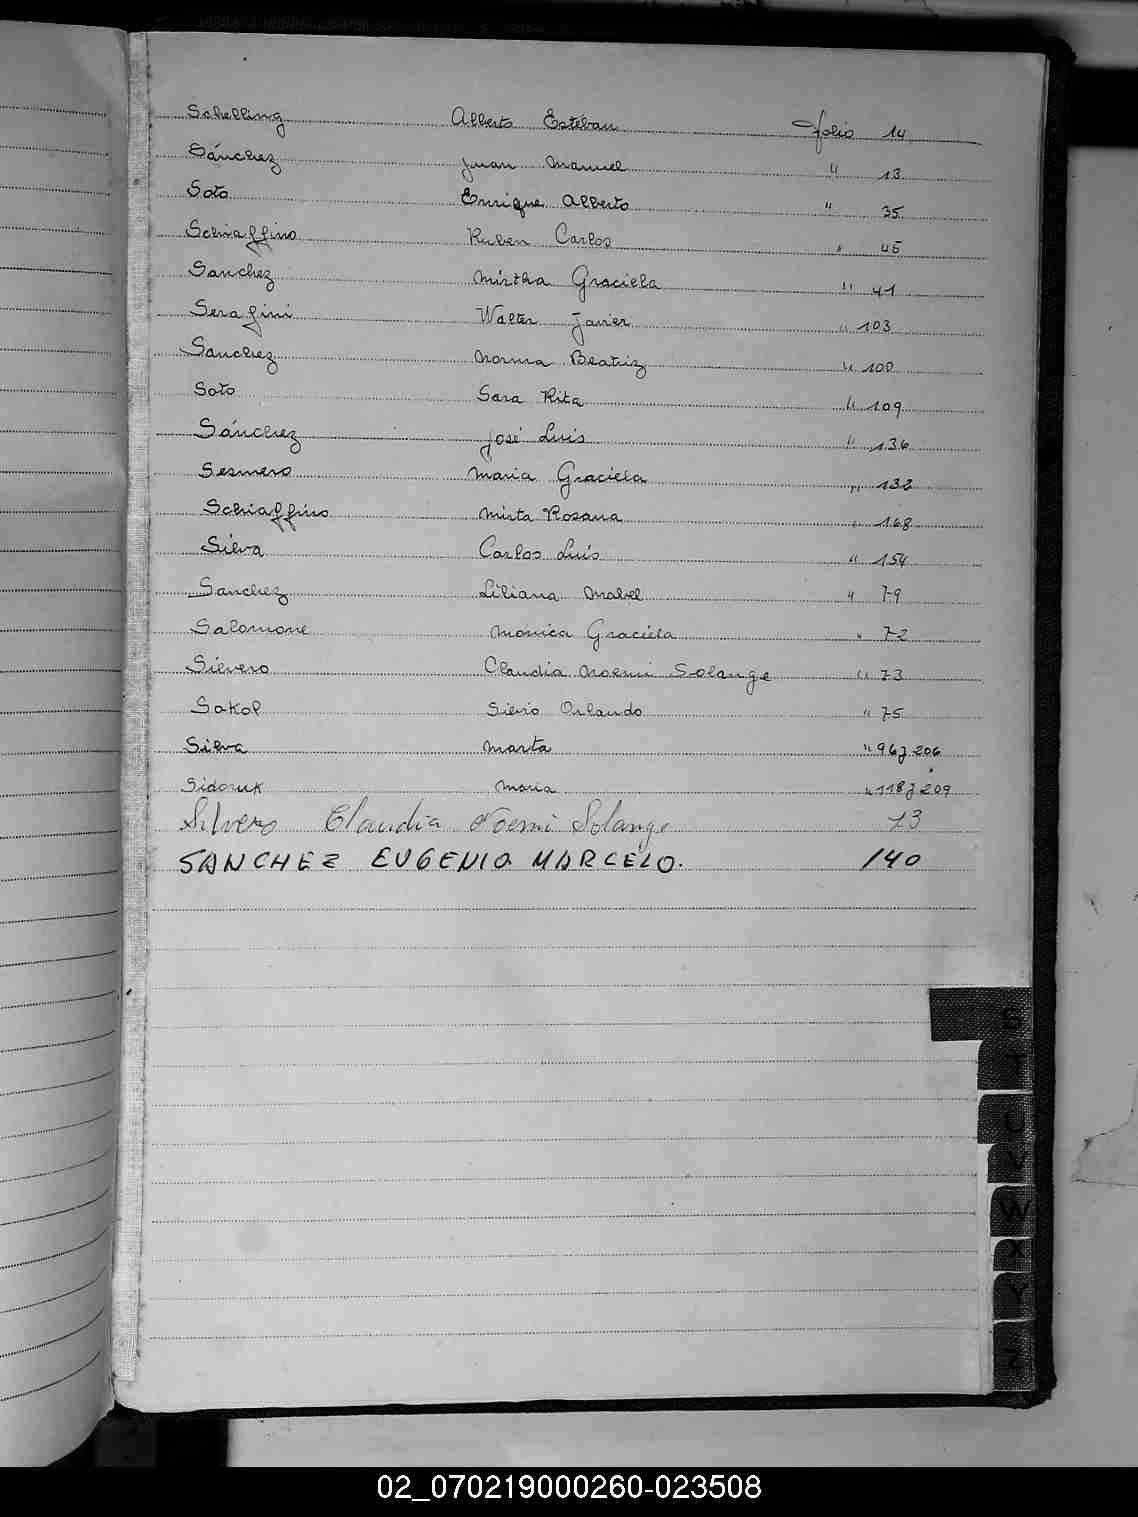 Schelling Alberto Esteban folio 14
Sánchez Juan Manuel " 13
Soto Enrique Alberto " 35
Schiaffino Ruben Carlos " 45
Sanchez Mirtha Graciela " 41
Serafini Walter Javier " 103
Sanchez Norma Beatriz " 100
Soto Sara Rita " 109
Sánchez José Luis " 136
Sesmero Maria Graciela " 132
Schiaffino Mirta Rosana " 168
Silva Carlos Luis " 154
Sanchez Liliana Mabel " 79
Salomone Monica Graciela " 72
Silvero Claudia Noemi Solange " 73
Sokol Silvio Orlando " 75
Silva Marta " 96 y 206
Sidoruk Maria " 118 y 209
Silvero Claudia Noemi Solange 73
SANCHEZ EUGENIO MARCELO. 140
S
T
U
V
W
X
Y
Z
02_070219000260-023508